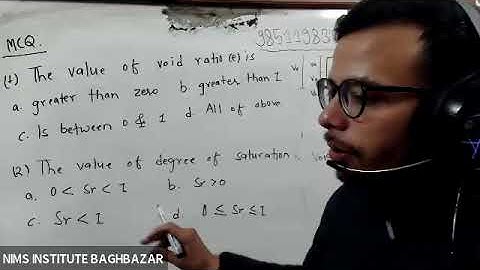 MCQ.
98511983
(1) The value of void ratio (e) is
a. greater than zero b. greater than 1
c. Is between 0 & 1 d. All of above
(2) The value of degree of saturation
a. 0 < Sr < 1 b. Sr > 0
c. Sr < 1 d. 0 ≤ Sr ≤ 1
NIMS INSTITUTE BAGHBAZAR